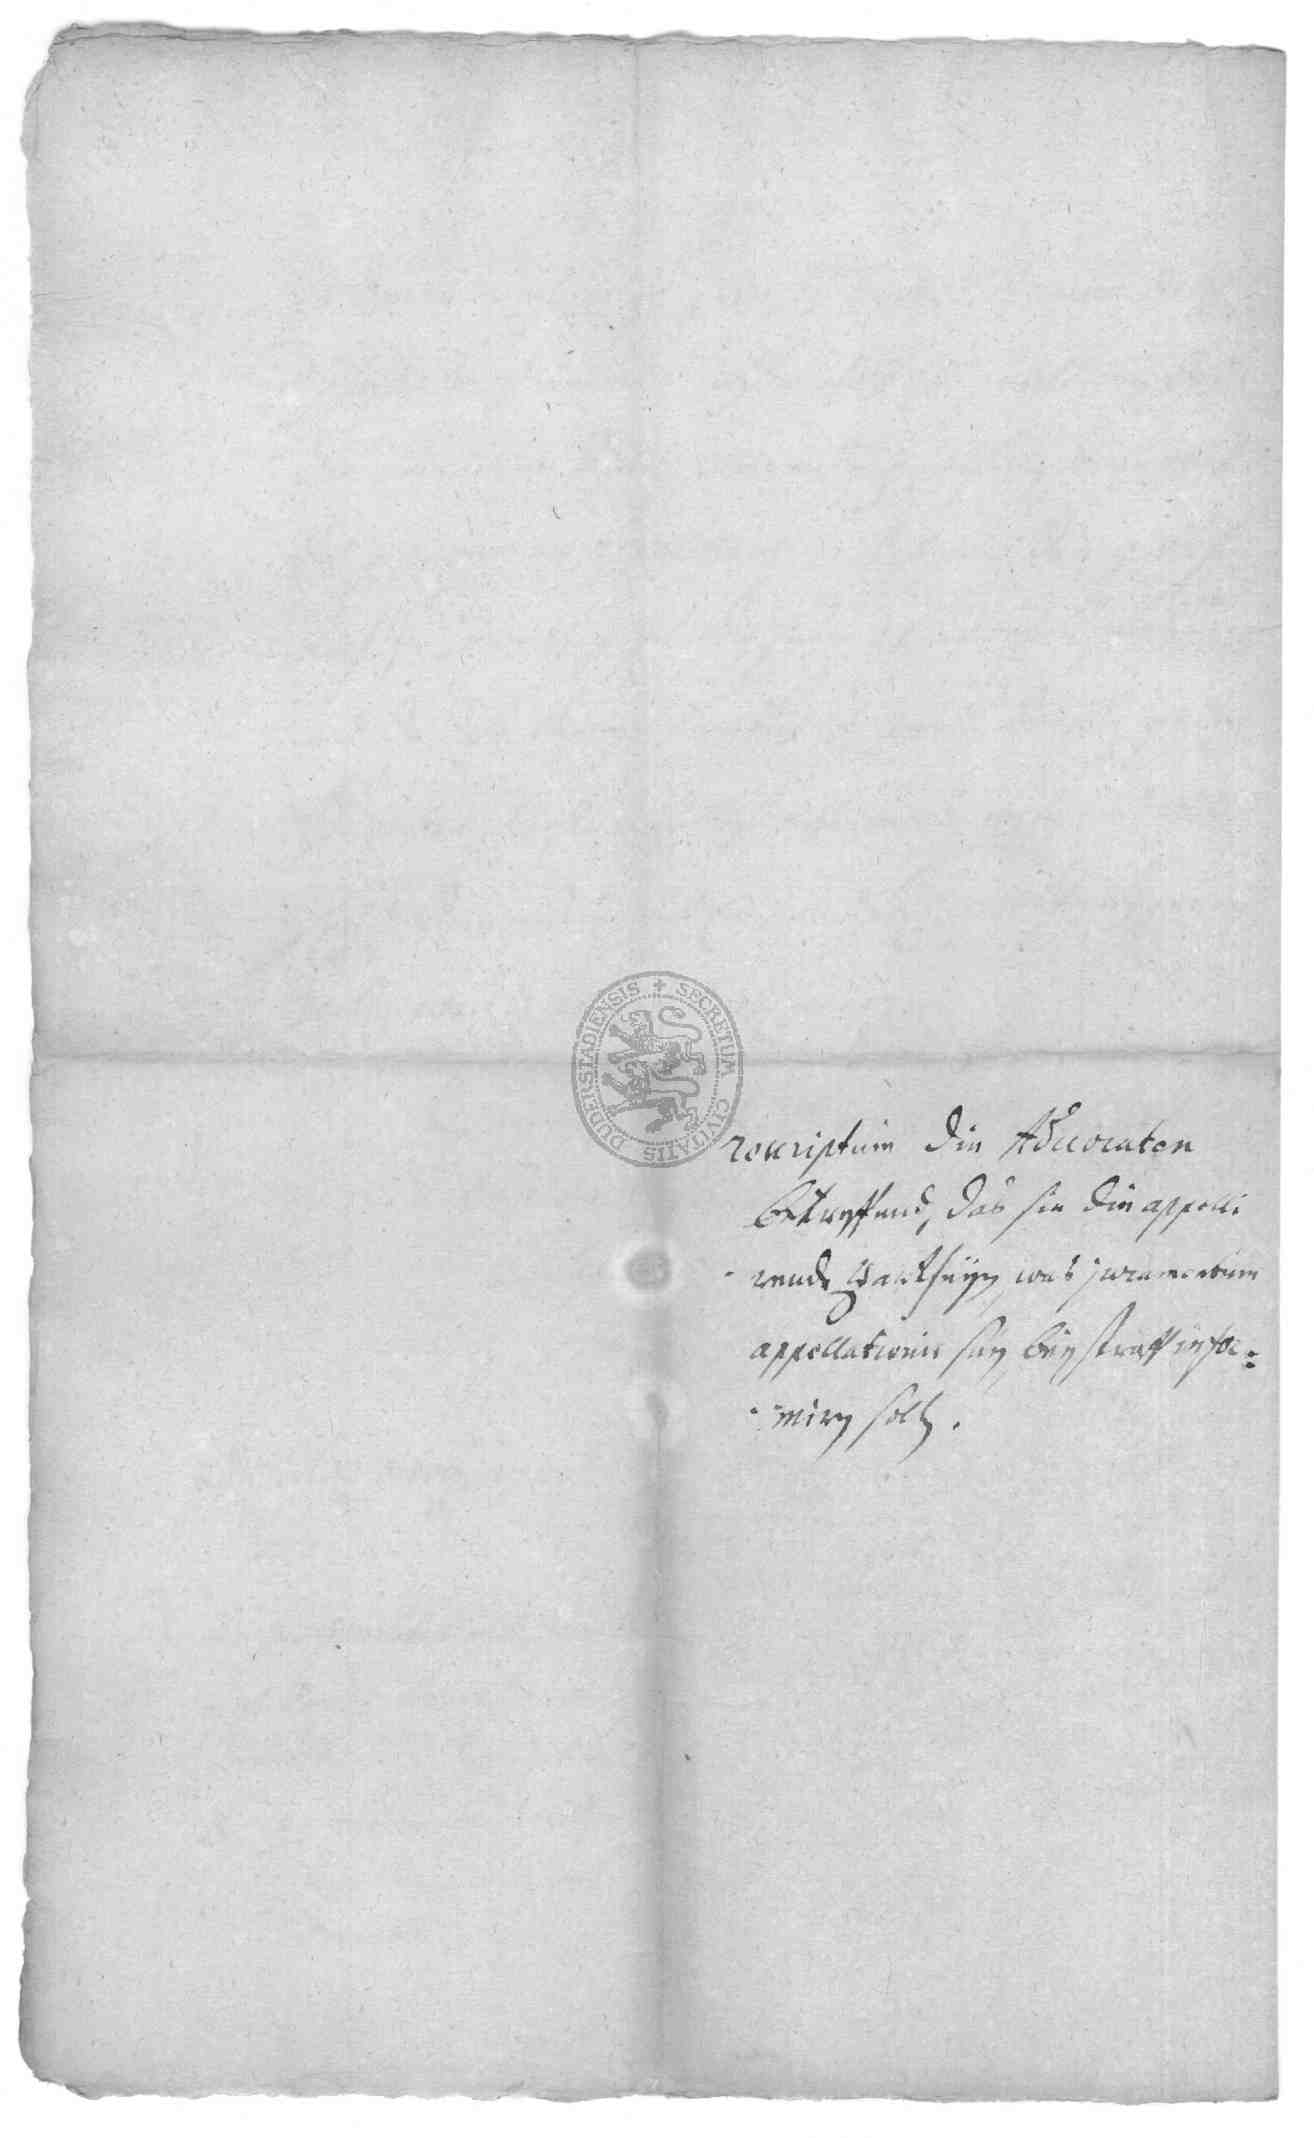 SECRETUM CIVITATIS DUDERSTADIENSIS
rescriptum die Advocaten
betreffend, das sie die appelli
rende Partheyen, was juramentum
appellationis sey bey straff infor-
miren sollen.